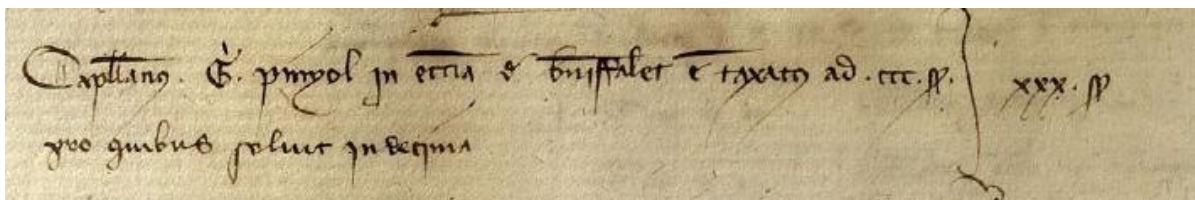 Capllanus. G. pinyol in eccia de buiffalet e taxatus ad .ccc. ss. xxx. ss
pro quibus soluit in decima